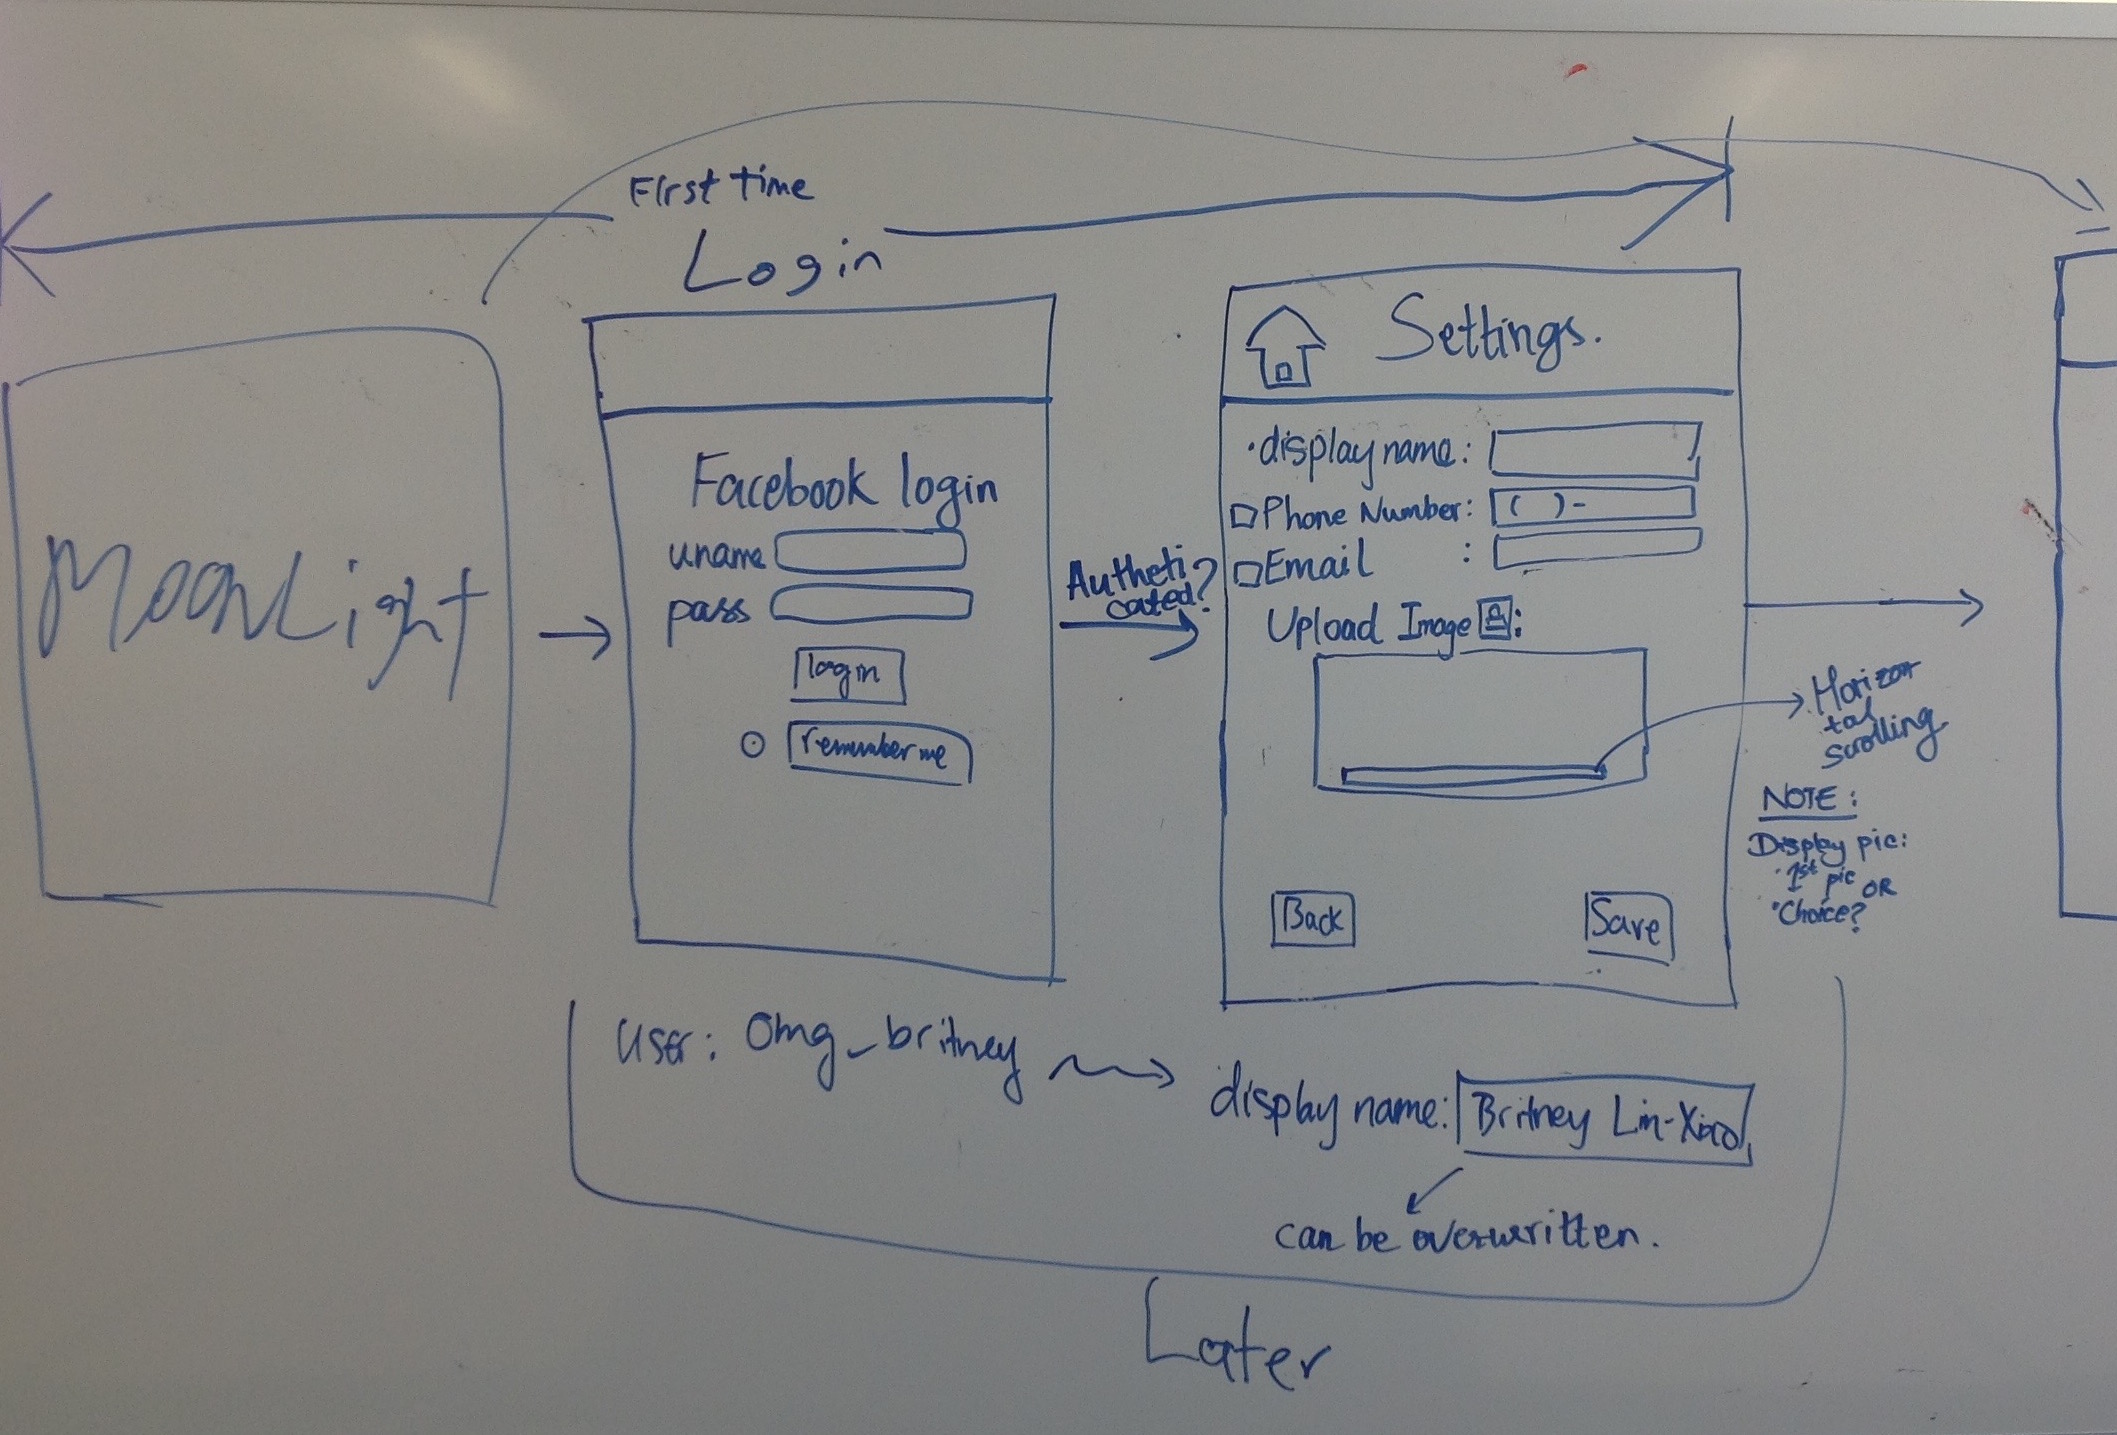 First time
Login
MoonLight
Facebook login
uname
pass
login
remember me
Autheti
cated?
Settings.
• display name:
Phone Number: ( ) -
Email :
Upload Image :
Back
Save
Horizon
tal
scrolling
NOTE:
Display pic:
• 1st pic OR
• Choice?
user: omg_britney
display name: Britney Lin-Xiao
can be overwritten.
Later